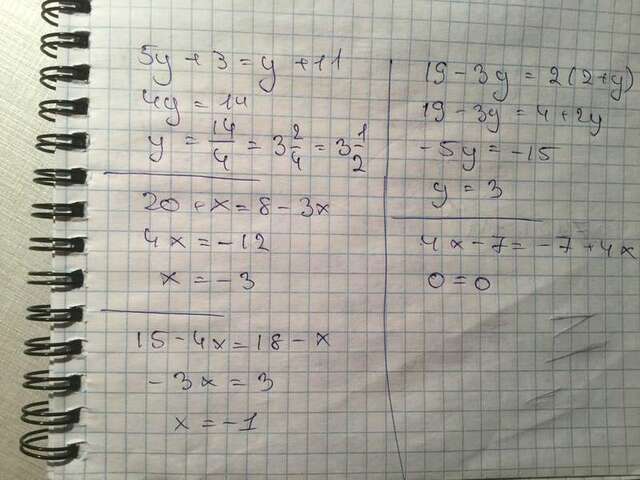 5y + 3 = y + 11
4y = 14
y = 14/4 = 3 2/4 = 3 1/2
20 + x = 8 - 3x
4x = -12
x = -3
15 - 4x = 18 - x
-3x = 3
x = -1
19 - 3y = 2(2+y)
19 - 3y = 4 + 2y
-5y = -15
y = 3
4x - 7 = -7 + 4x
0 = 0